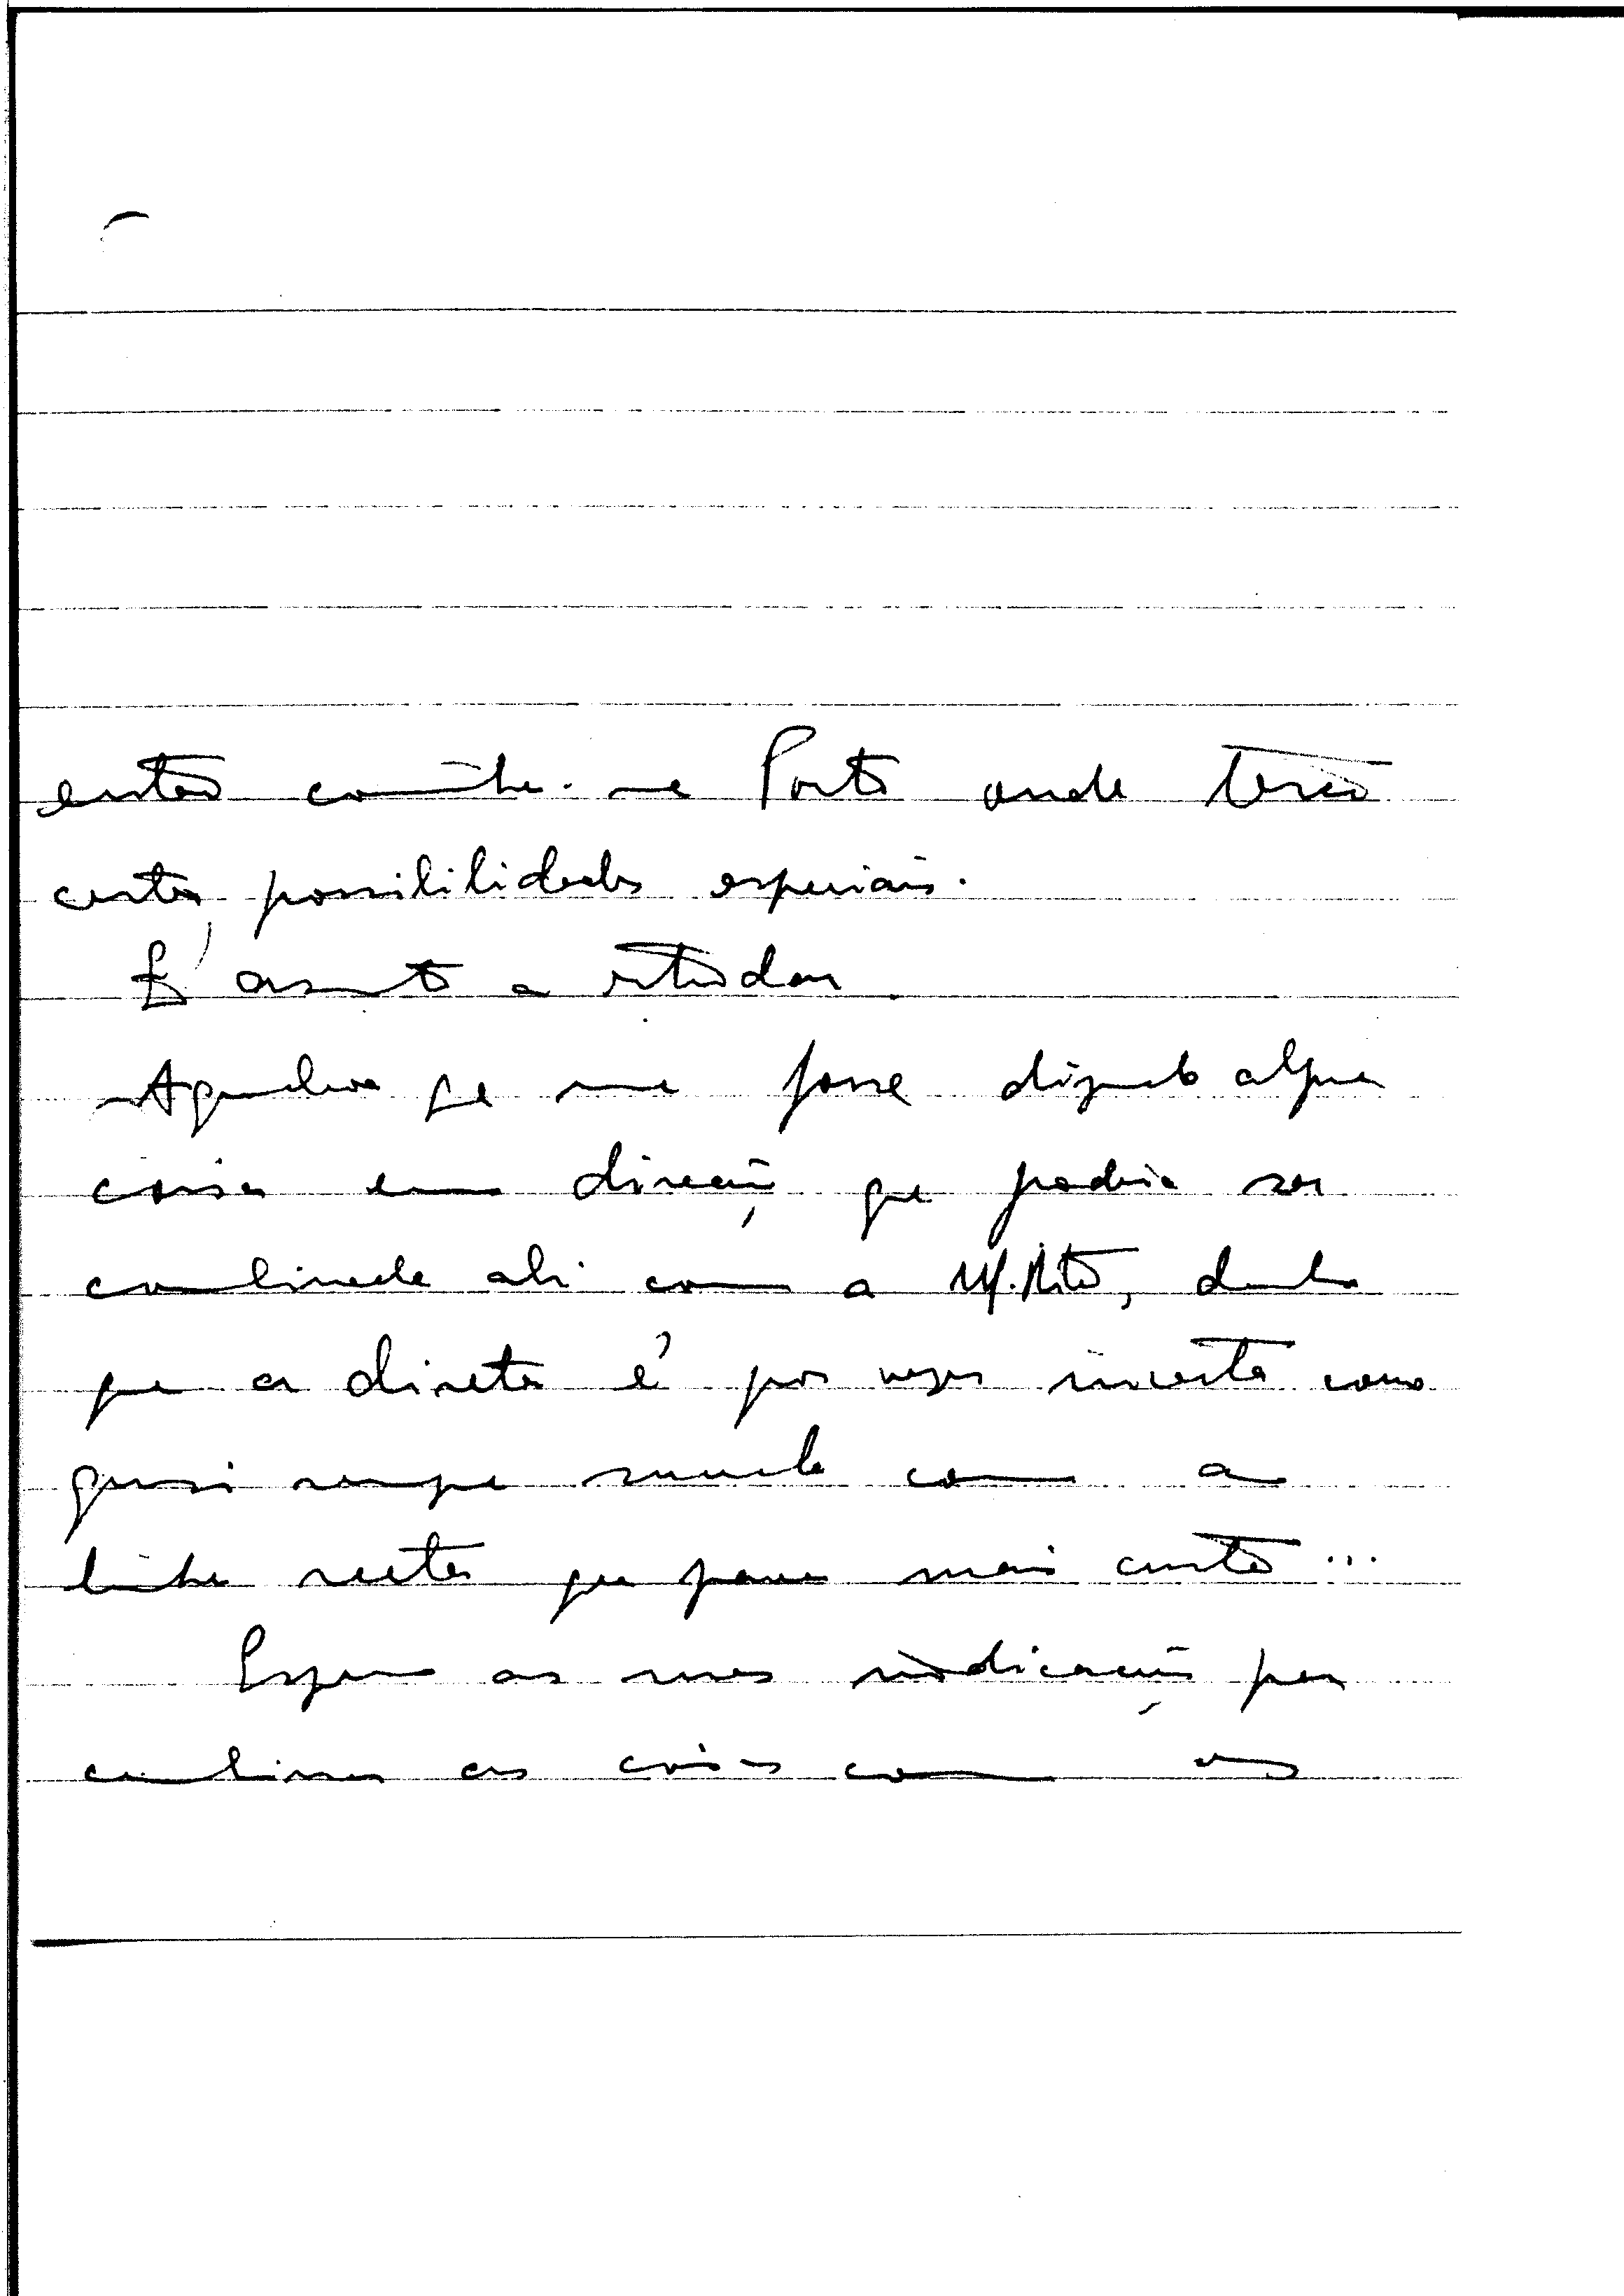 então caminha-se Porto onde terão
certas possibilidades especiais.
É assunto a estudar
Agradecia que me fosse dizendo alguma
coisa em direcção que poderia ser
combinada ali com a M. , dado
que a directa é por vezes incerta como
quasi sempre sucede com a
linha recta que parece mais curta ...
Espero as suas indicações para
combinar as coisas com os